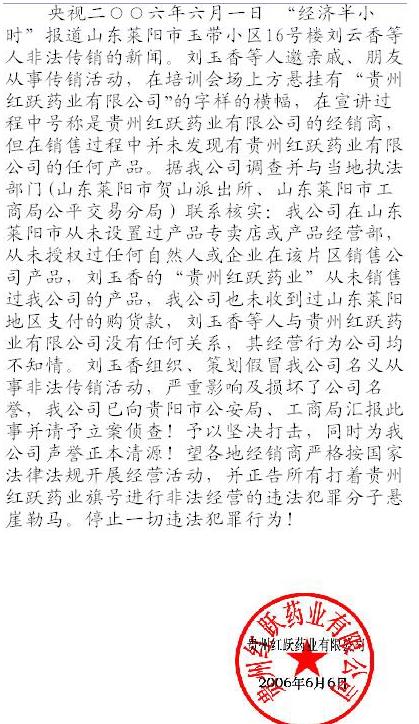 央视二〇〇六年六月一日 “经济半小
时”报道山东莱阳市玉带小区16号楼刘云香等
人非法传销的新闻。刘玉香等人邀亲戚、朋友
从事传销活动，在培训会场上方悬挂有“贵州
红跃药业有限公司”的字样的横幅，在宣讲过
程中号称是贵州红跃药业有限公司的经销商，
但在销售过程中并未发现有贵州红跃药业有限
公司的任何产品。据我公司调查并与当地执法
部门(山东莱阳市贺山派出所、山东莱阳市工
商局公平交易分局)联系核实：我公司在山东
莱阳市从未设置过产品专卖店或产品经营部，
从未授权过任何自然人或企业在该片区销售公
司产品，刘玉香的“贵州红跃药业”从未销售
过我公司的产品，我公司也未收到过山东莱阳
地区支付的购货款，刘玉香等人与贵州红跃药
业有限公司没有任何关系，其经营行为公司均
不知情。刘玉香组织、策划假冒我公司名义从
事非法传销活动，严重影响及损坏了公司名
誉，我公司已向贵阳市公安局、工商局汇报此
事并请予立案侦查！予以坚决打击，同时为我
公司声誉正本清源！望各地经销商严格按国家
法律法规开展经营活动，并正告所有打着贵州
红跃药业旗号进行非法经营的违法犯罪分子悬
崖勒马。停止一切违法犯罪行为！
贵州红跃药业有限公司
贵州红跃药业有限公司
2006年6月6日